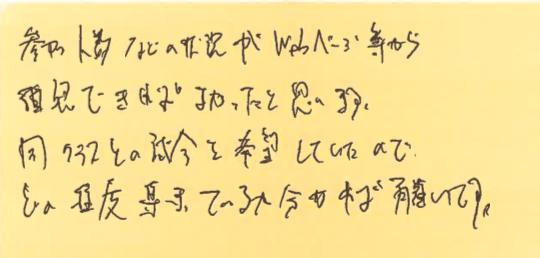 参加人数などの状況がWebページ等から
確認できればよかったと思います。
同クラスとの試合を希望していたので、
どの程度集まっているか分かれば有難いです。